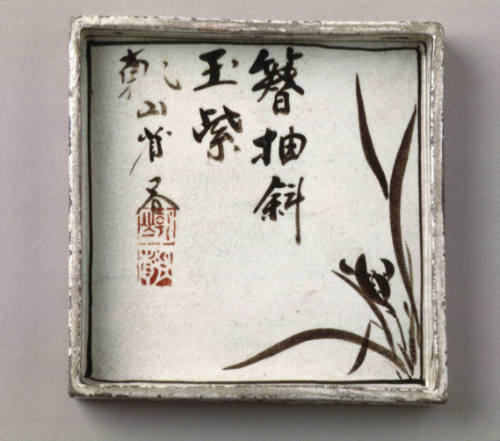 簪抽斜
玉紫
乾山省